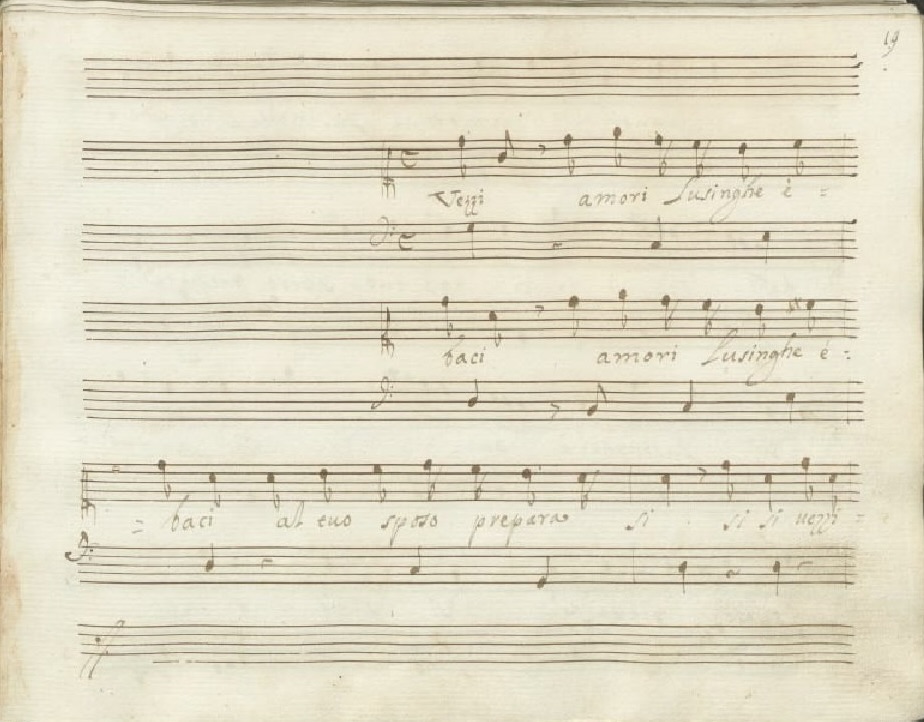 19
Vezzi amori Lusinghe è =
baci amori Lusinghe é =
= baci al tuo sposo prepara si si si vezzi =